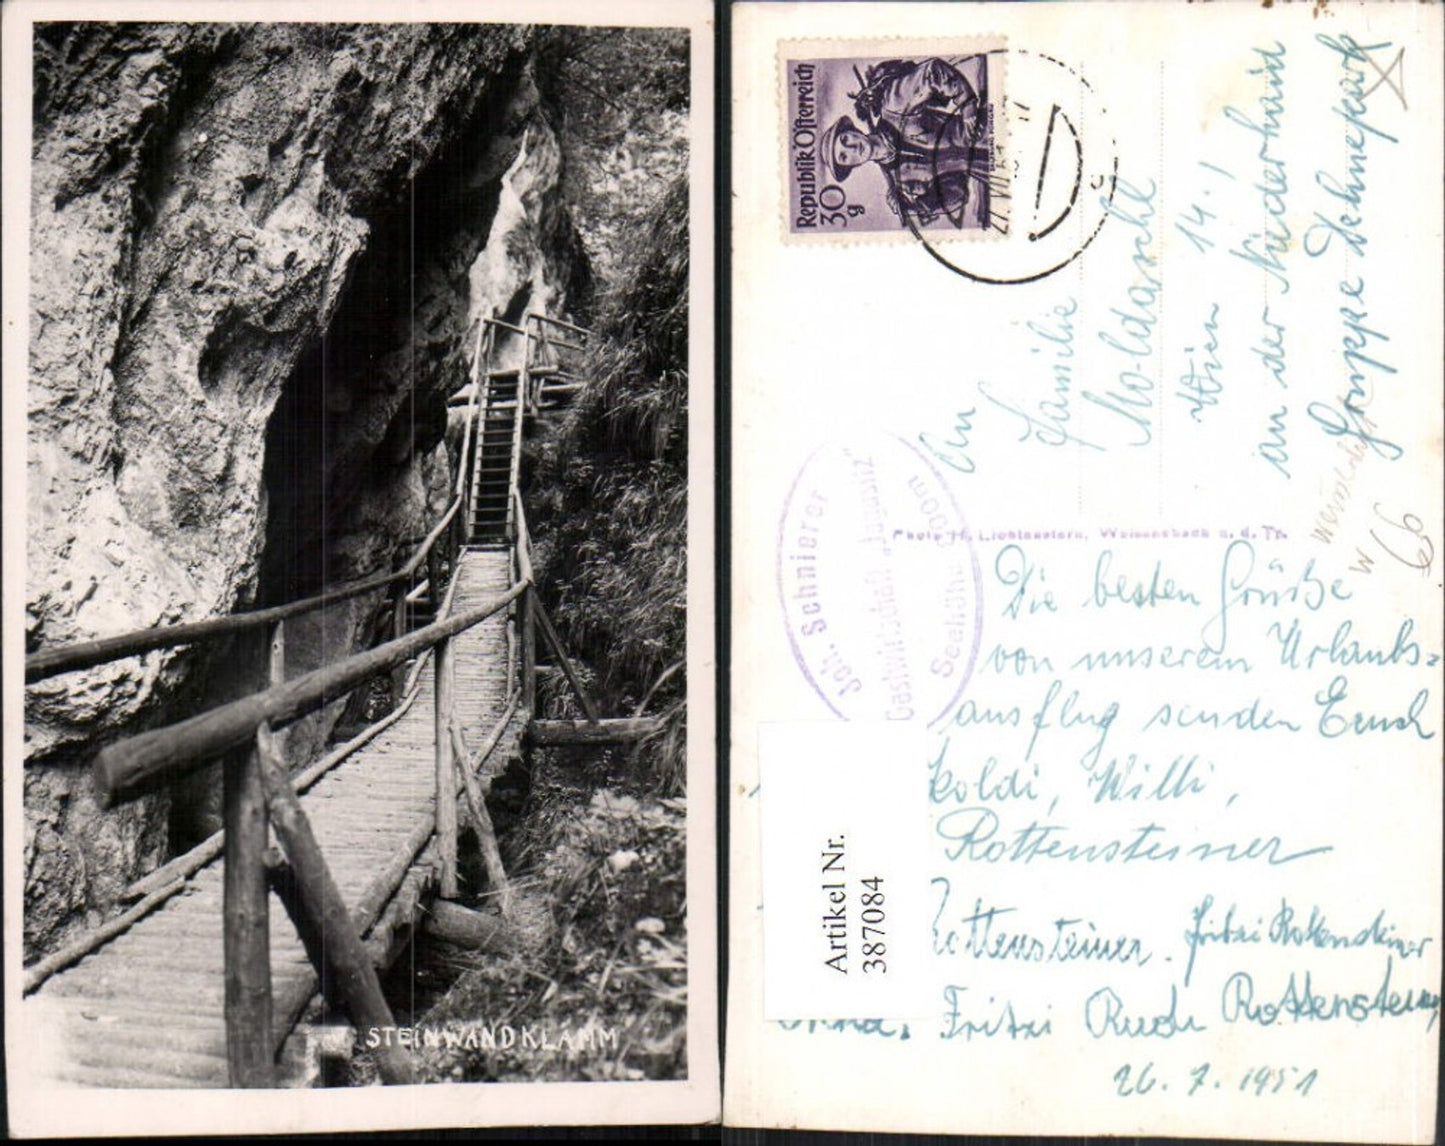 STEINWANDKLAMM
Republik Österreich
30 g
27. VII 51
An
Familie
Moldaschl
Wien 14.!
an der Niederhaid
Gruppe Dehnepark
66
Joh. Schnierer
Gastwirtschaft "Jagasitz"
Seehöhe
Photo H. Lichtenstern, Weissenbach a. d. Tr.
Die besten Grüße
von unserem Urlaubs-
ausflug senden Euch
Willi,
Rottensteiner
Rottensteiner. Fritzi Rottensteiner
Fritzi Rudi Rottensteiner
26. 7. 1951
Artikel Nr.
387084